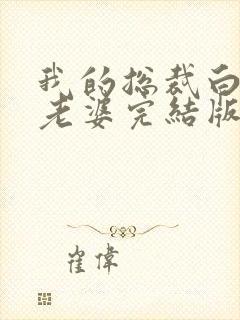 我的总裁白
老婆完結版
崔偉